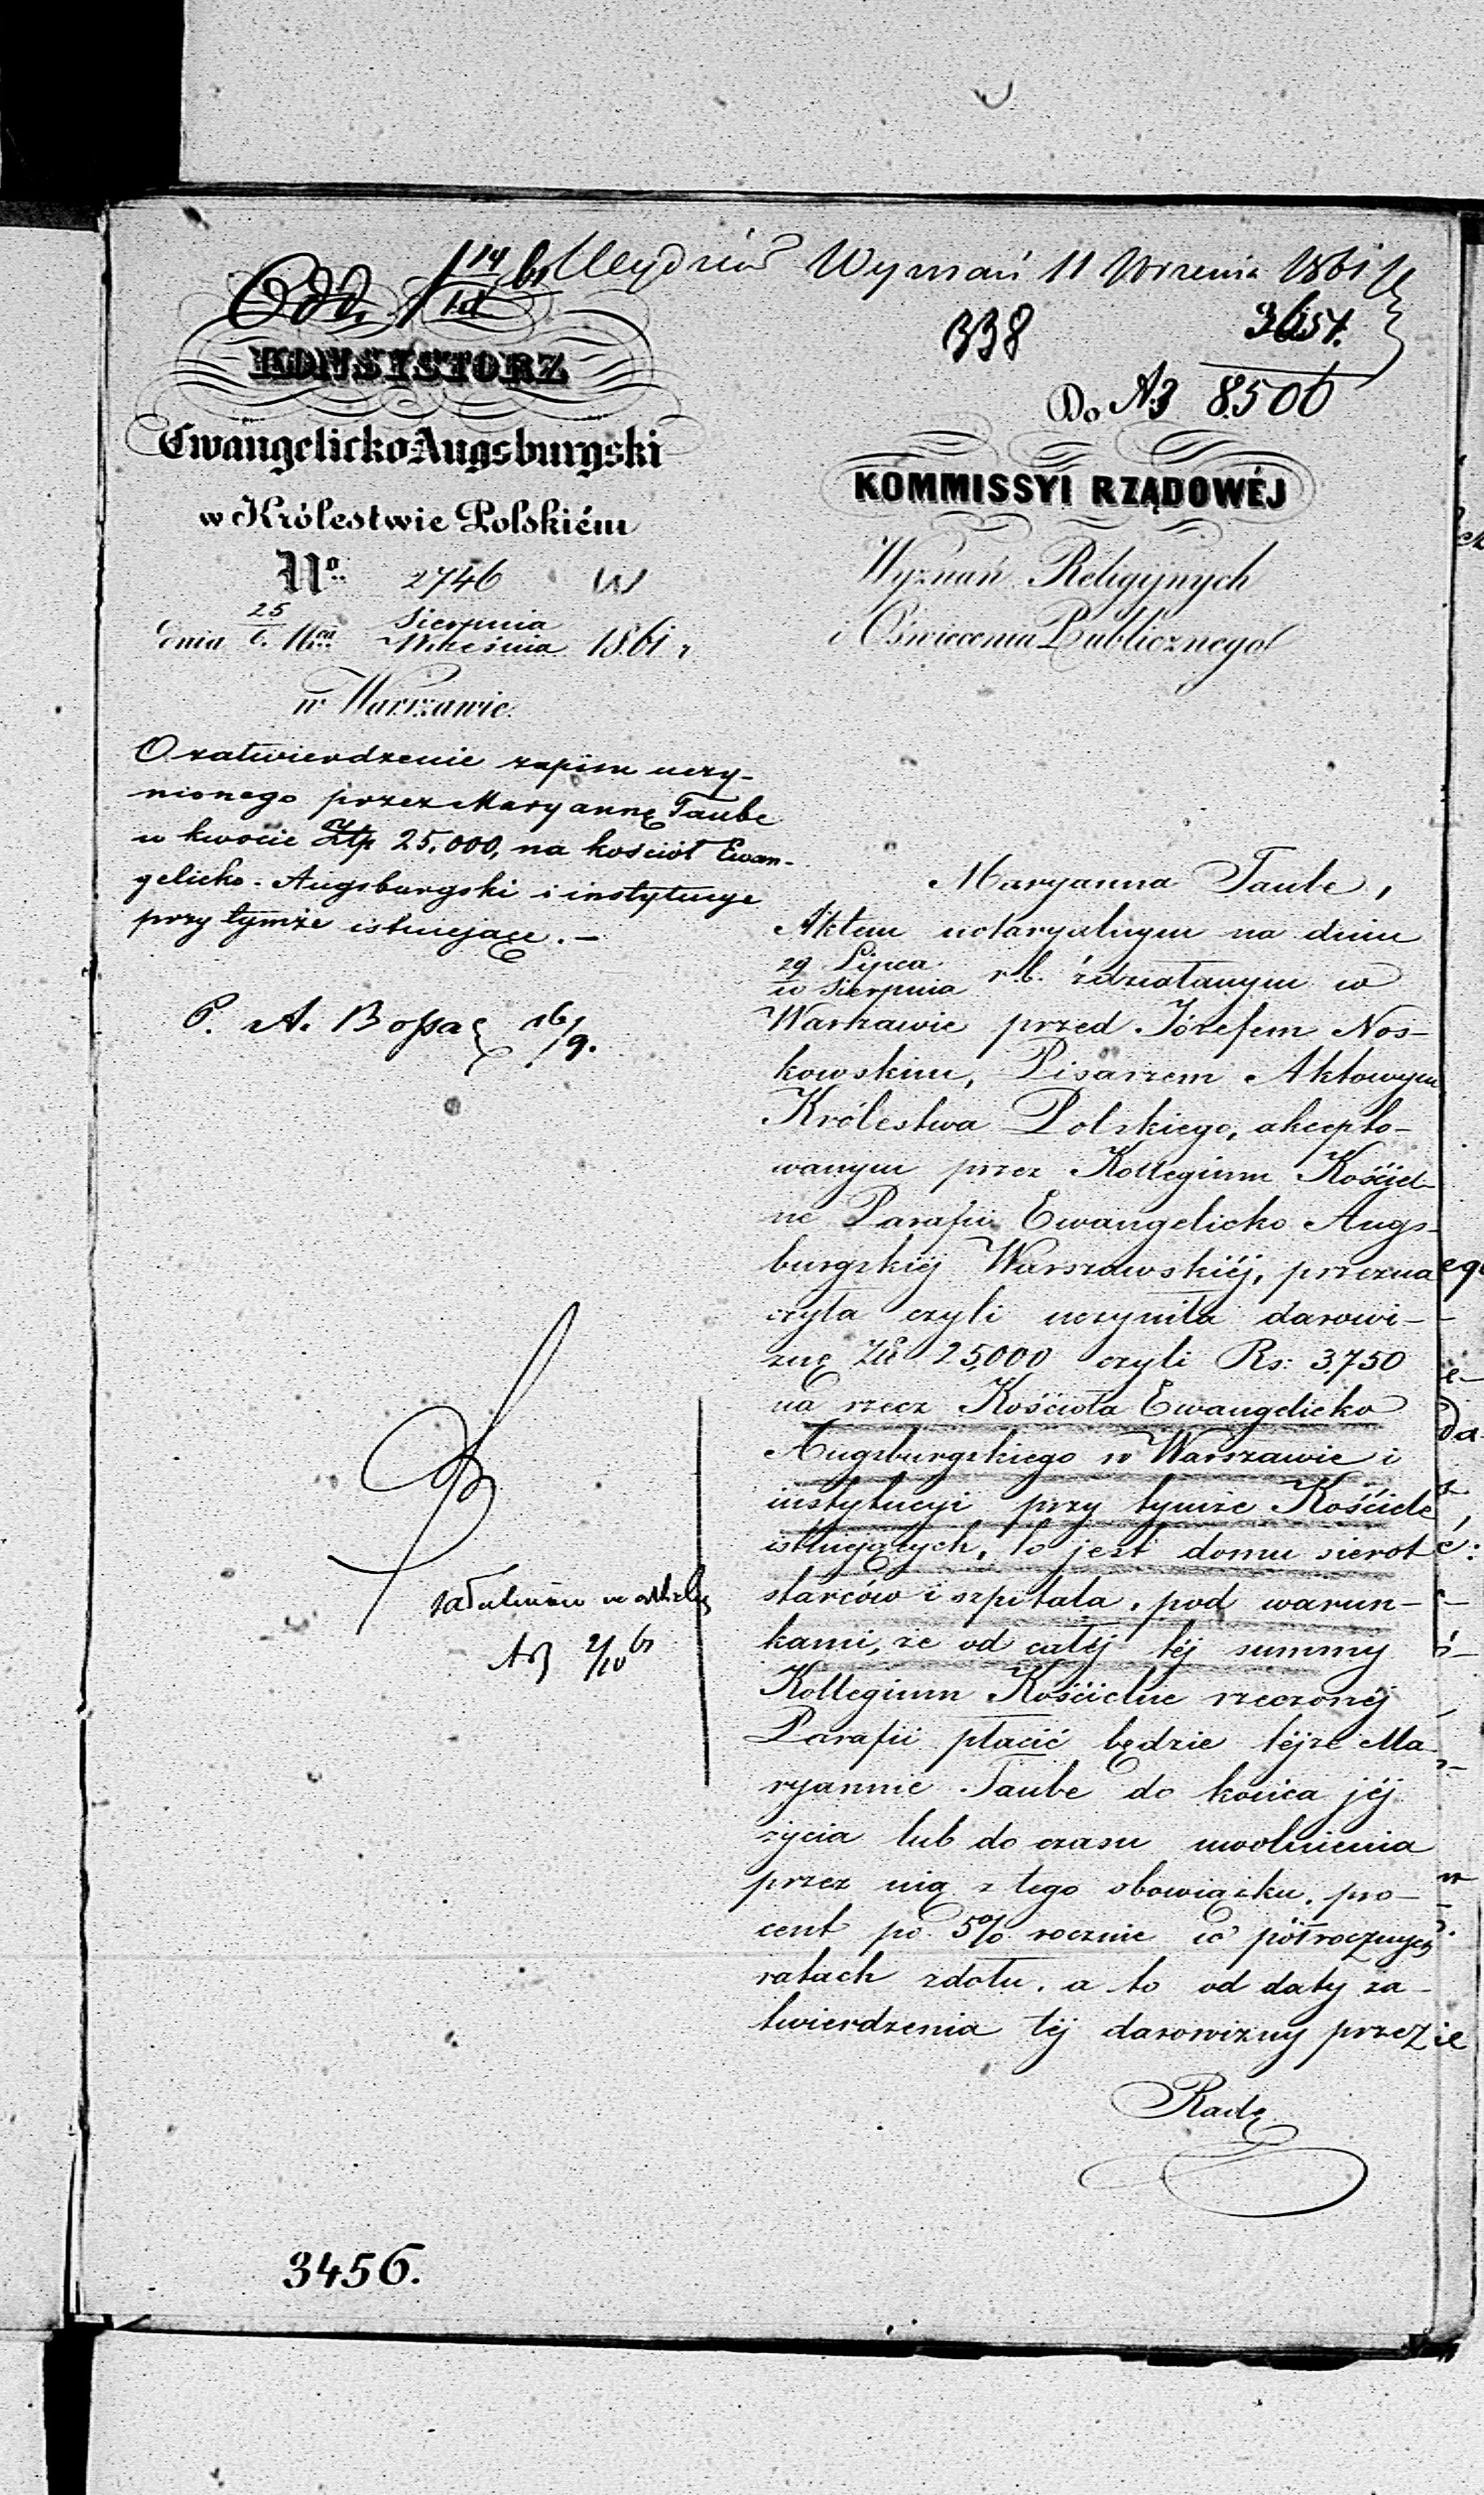 Wyznań 11 Września 1861
338
3654.
Do No 8500
KONSYSTORZ
Ewangelicko-Augsburgski
w Królestwie Polskiém
No. 2746
dnia 25 Sierpnia / 6 Września 1861 r
w Warszawie.
O zatwierdzenie zapisu uczy-
nionego przez Maryannę Taube
w kwocie Złp. 25,000, na kościół Ewan-
gelicko-Augsburgski i instytucye
przy tymże istniejące. —
16/9.
KOMMISSYI RZĄDOWÉJ
Wyznań Religijnych
i Oświecenia Publicznego
Maryanna Taube,
Aktem notaryalnym na dniu
29 Lipca / 10 Sierpnia r.b. zdziałanym w
Warszawie przed Józefem Nos-
kowskim, Pisarzem Aktowym
Królestwa Polskiego, akcepto-
wanym przez Kollegium Kościel-
ne Parafii Ewangelicko Augs-
burgskiéj Warszawskiéj, przezna
czyła czyli uczyniła darowi-
znę Złp 25,000 czyli Rs: 3,750
na rzecz Kościoła Ewangelicko
Augsburgskiego w Warszawie i
instytucyi przy tymże Kościele
istniejących, to jest domu sierot
starców i szpitala, pod warun-
kami, że od całéj téj summy
Kollegium Kościelne rzeczonéj
Parafii płacić będzie téjże Ma-
ryannie Taube do końca jéj
życia lub do czasu uwolnienia
przez nią z tego obowiązku, pro-
cent po 5% rocznie w półrocznych
ratach zdołu, a to od daty za-
twierdzenia téj darowizny przez
Radę
3456.